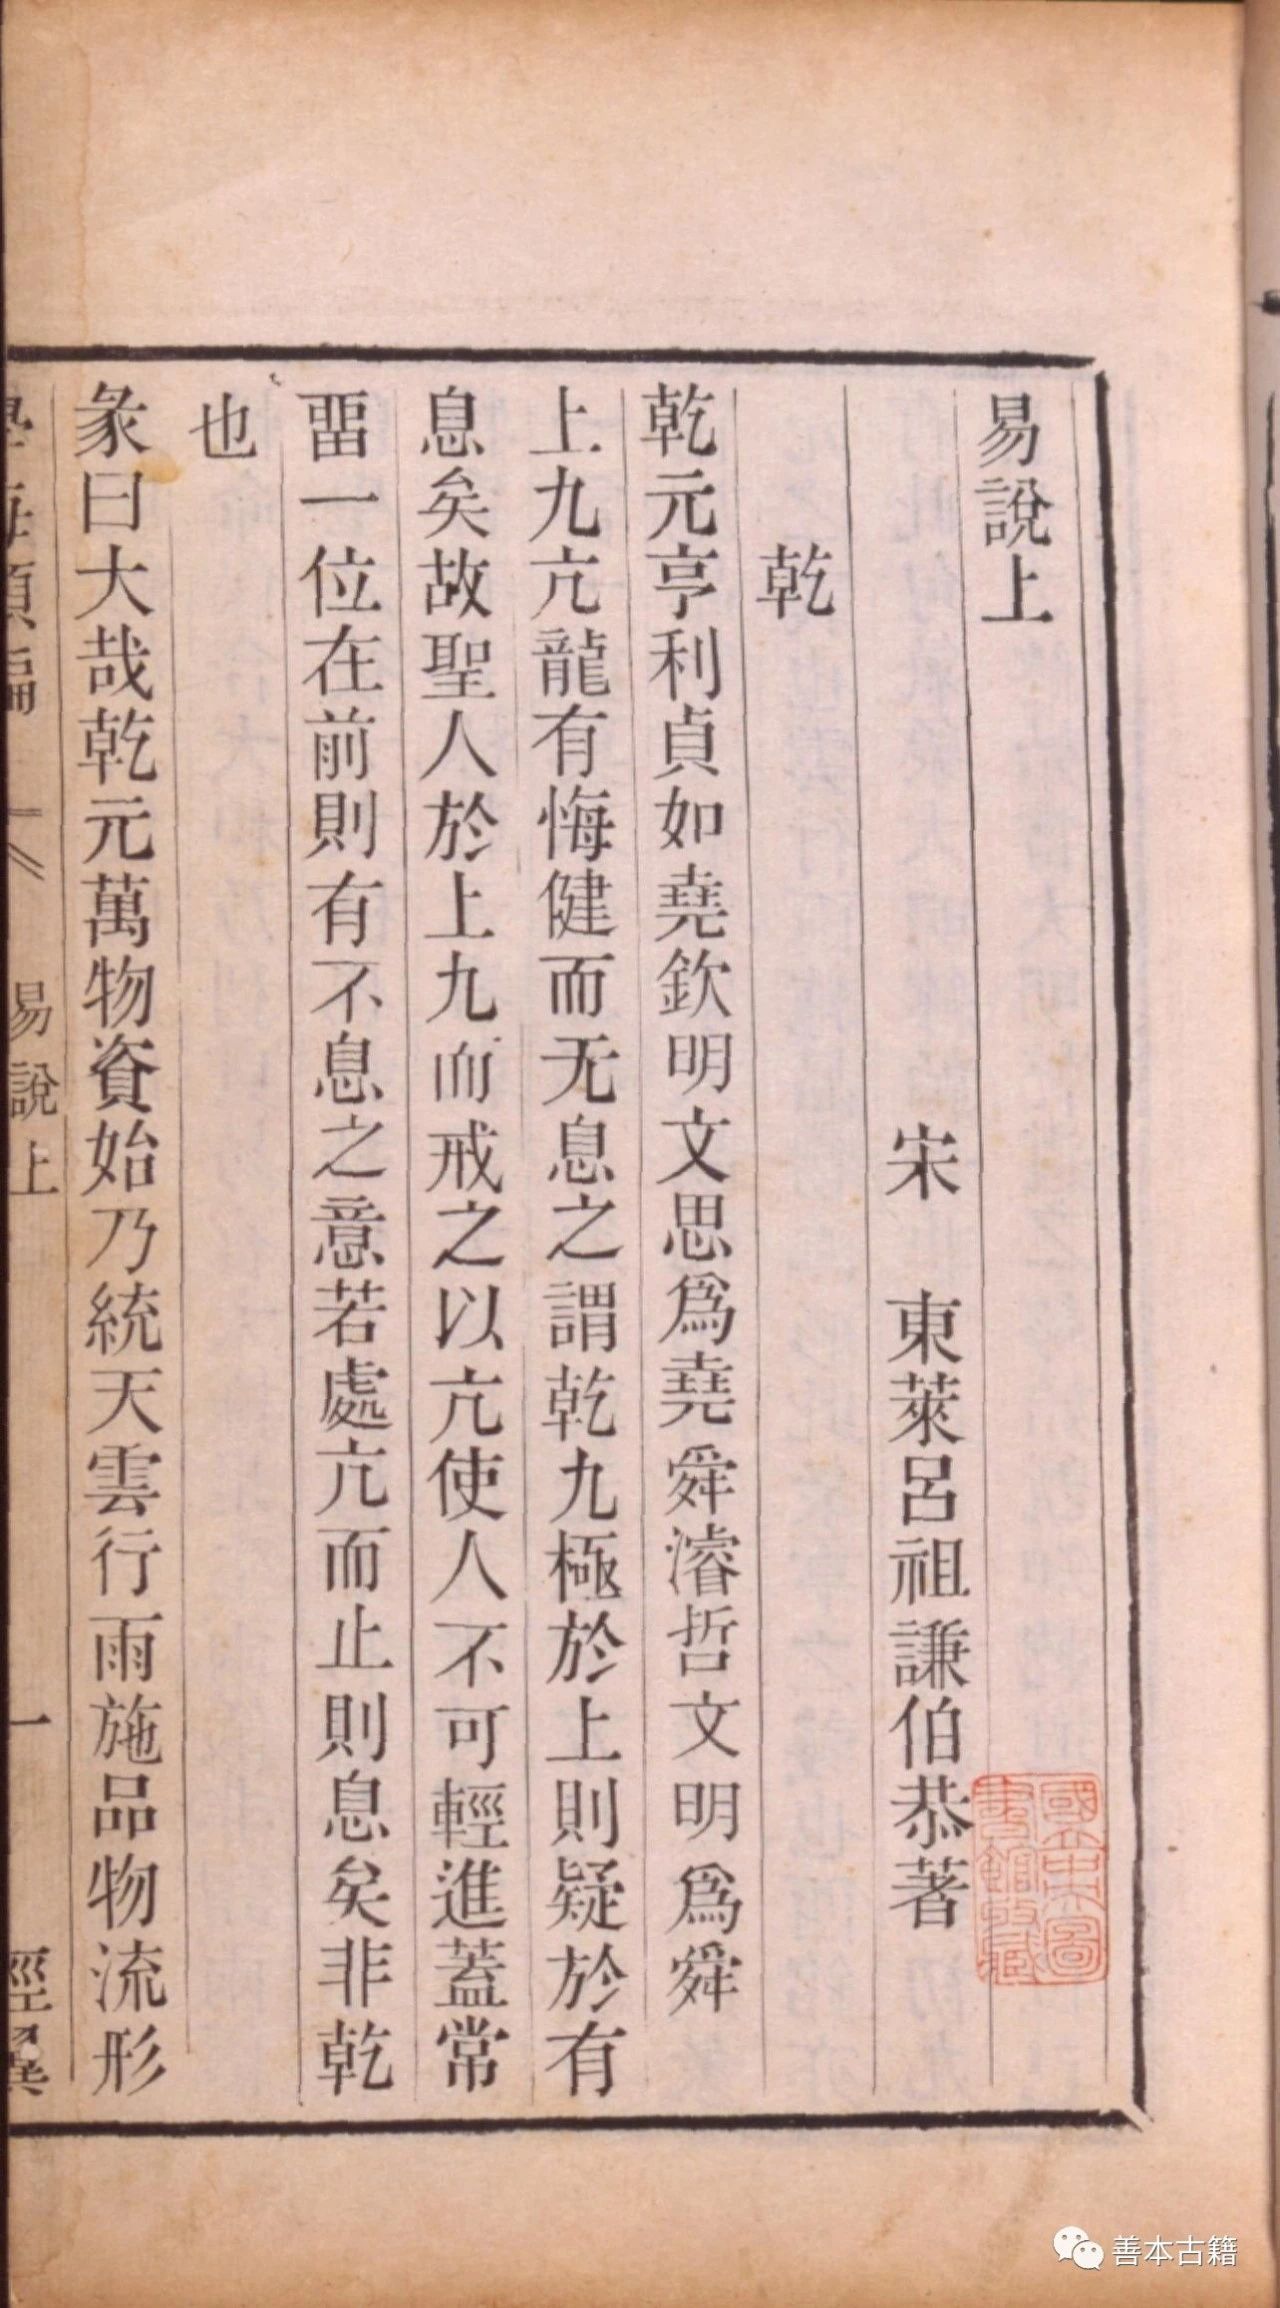 易說上
宋　東萊呂祖謙伯恭著
乾
乾元亨利貞如堯欽明文思爲堯舜濬哲文明爲舜
上九亢龍有悔健而无息之謂乾九極於上則疑於有
息矣故聖人於上九而戒之以亢使人不可輕進蓋常
畱一位在前則有不息之意若處亢而止則息矣非乾
也
彖曰大哉乾元萬物資始乃統天雲行雨施品物流形
學海類編　易說上　一　經翼
國立中央圖
書館收藏
善本古籍